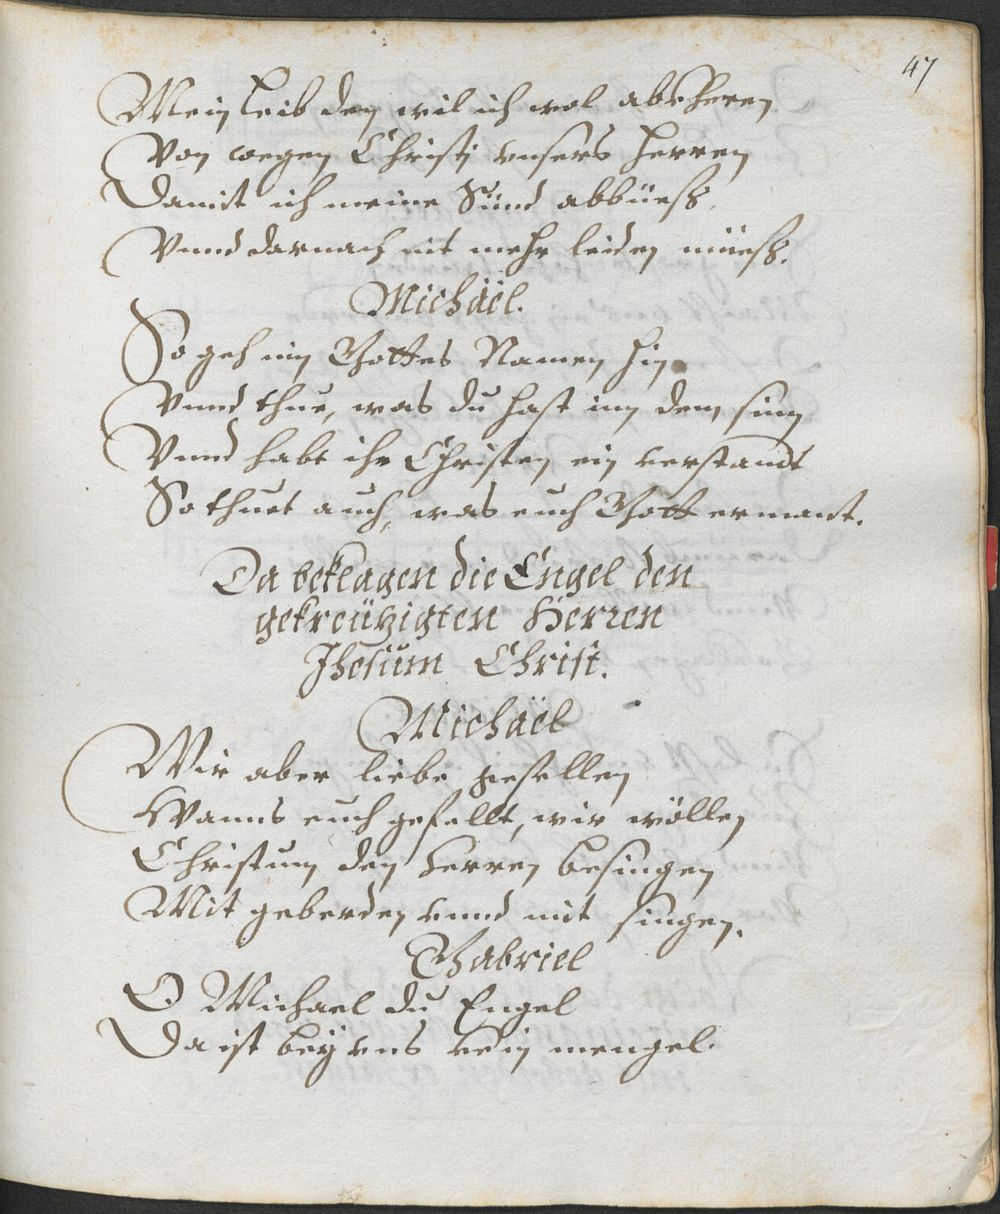 47
Mein Leib den wil ich wol abkheren
Von wegen Christi vnsers Herren
Damit ich meine Sünd abbüeß,
Vnnd darnach nit mehr leiden müeß.
Michäel.
So geh inn Gottes Namen hin
Vnnd thue, was du hast inn dem sinn
Vnnd habt ihr Christen ein verstandt
So thuet auch, was euch Gott ermant.
Da beklagen die Engel den
gekreützigten Herren
Jhesum Christ.
Michaël
Wir aber liebe gesellen
Wanns euch gefellt, wir wöllen
Christum den Herren besingen
Mit geberden vnnd mit singen.
Gabriel
O Michael du Engel
Da ist bey vns kein mengel.